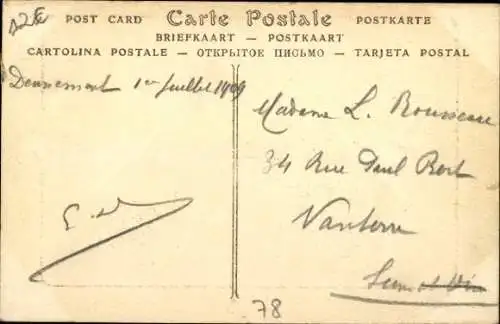 12E
POST CARD Carte Postale POSTKARTE
BRIEFKAART — POSTKAART
CARTOLINA POSTALE — ОТКРЫТОЕ ПИСЬМО — TARJETA POSTAL
Dennemont 1er Juillet 1909
Madame L. Rousseau
34 Rue Paul Bert
Nanterre
78